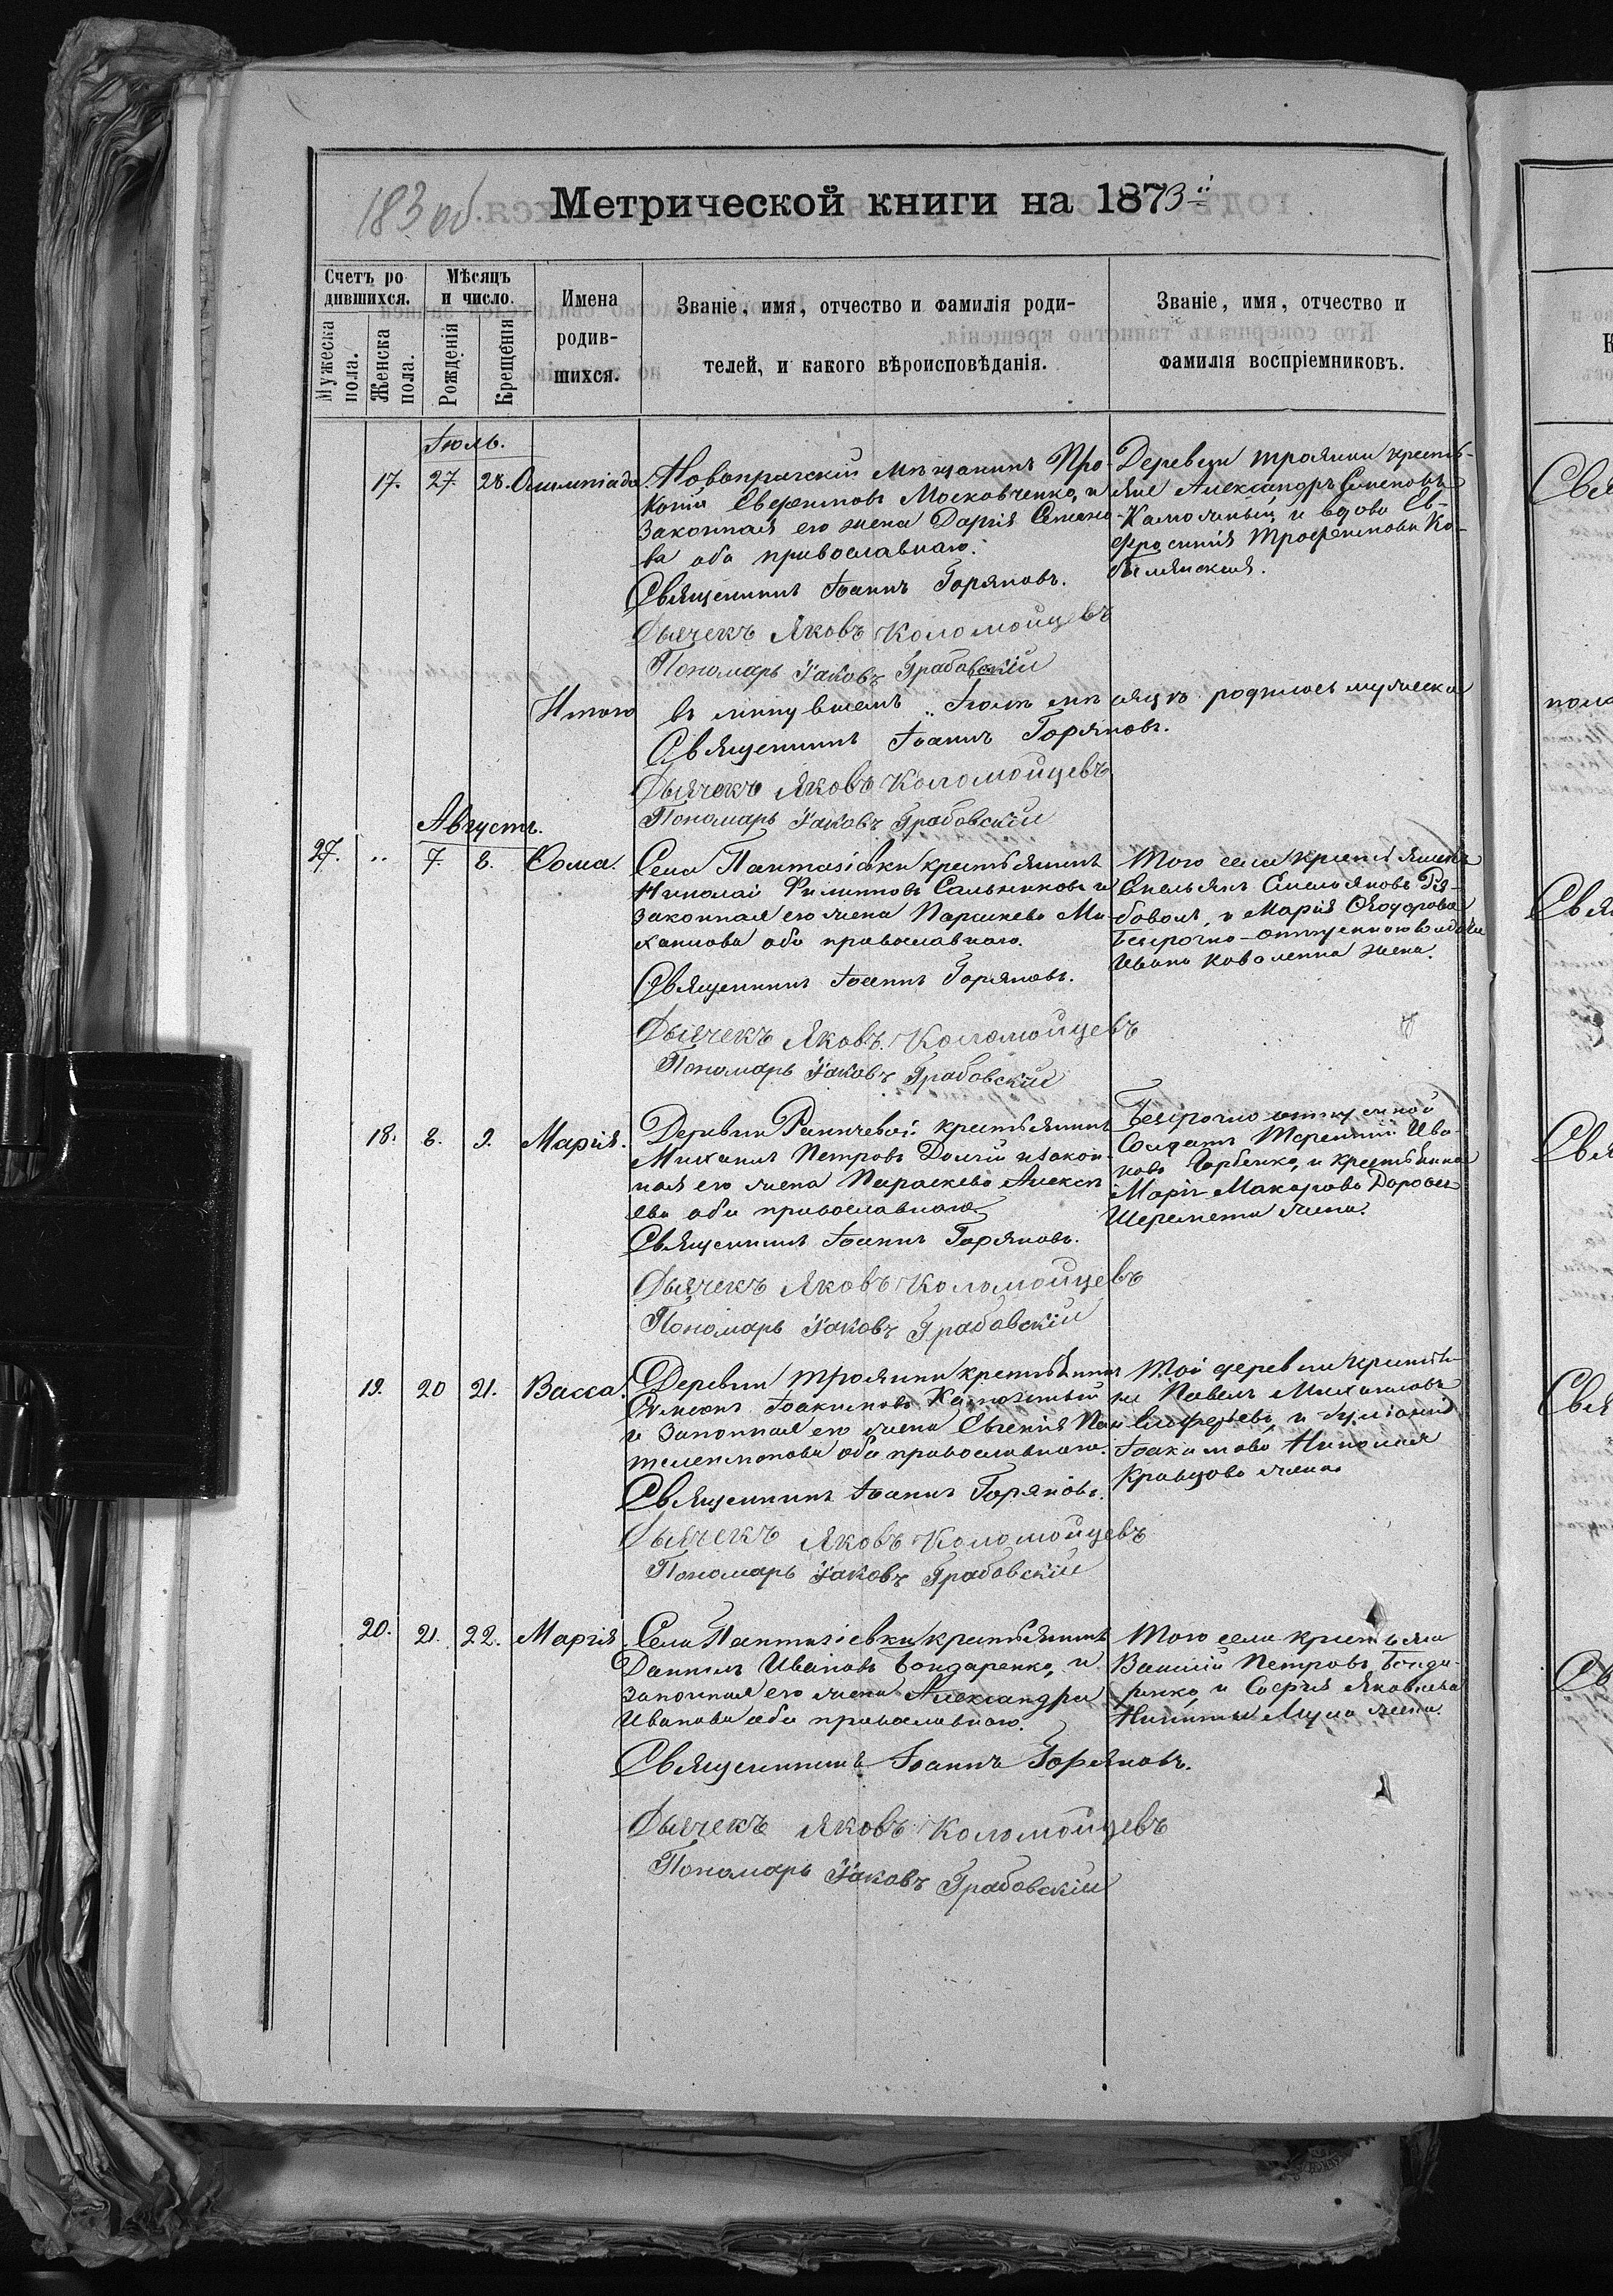 183 об.
Метрической книги на 1873й
Счетъ ро
дившихся.
Мужеска пола.
Женска пола.
Мѣсяцъ и число.
Рожденія
Крещенія
Имена родив-
шихся.
Званіе, имя, отчество и фамилія роди-
телей, и какого вѣроисповѣданія.
Званіе, имя, отчество и
фамилія воспріемниковъ.
Іюль.
17. 27. 28. Олимпіада.
Новопражскій мѣщанинъ Про-
копій Московченко, и
законная его жена Дарія Семено-
ва оба православнаго.
Священникъ Іоаннъ Горяновъ.
Дьячекъ Яковъ Коломойцевъ
Пономарь Іаковъ Грабовскій
Деревни Трояжки кресть-
яне Александръ Семеновъ
и вдова Ев-
фросинія Трофимова Ко-
Итого въ минувшемъ Іюлѣ мѣсяцѣ родилось мужеска
Священникъ Іоаннъ Горяновъ.
Дьячекъ Яковъ Коломойцевъ
Пономарь Іаковъ Грабовскій
Августъ.
27. „ 7. 8. Ѳома.
Села Пантазіевки крестьянинъ
Николай Филиповъ Сальниковъ и
законная его жена Параскева Ми-
хаилова оба православнаго.
Священникъ Іоаннъ Горяновъ.
Дьячекъ Яковъ Коломойцевъ
Пономарь Іаковъ Грабовскій
Того села крестьянинъ
Емельянъ Емельяновъ Ря-
боволъ, и Марія Ѳеодорова
безсрочно-отпускного солдата
Ивана Коваленка жена.
18. 8. 9. Марія.
Деревни крестьянинъ
Михаилъ Петровъ Долгій и закон-
ная его жена Параскева Алексѣ
ева оба православнаго
Священникъ Іоаннъ Горяновъ.
Дьячекъ Яковъ Коломойцевъ
Пономарь Іаковъ Грабовскій
Безсрочно отпускной
солдатъ Терентій Ива-
новъ Горбенко, и крестьянина
Марія Макарова Дорофея
Шеремета жена.
19. 20 21. Васса.
Деревни Трояжки крестьянинъ
Симеонъ Іоакимовъ
и законная его жена Евгенія Пан
телеимонова оба православнаго.
Священникъ Іоаннъ Горяновъ.
Дьячекъ Яковъ Коломойцевъ
Пономарь Іаковъ Грабовскій
Той деревни крестья-
не Павелъ Михаиловъ
Елефтерьевъ, и Іуліанія
Іоакимова Николая
Кравцова жена
20. 21. 22. Марія.
Села Пантазіевки крестьянинъ
Даніилъ Ивановъ Бондаренко, и
законная его жена Александра
Иванова оба православнаго.
Священникъ Іоаннъ Горяновъ.
Дьячекъ Яковъ Коломойцевъ
Пономарь Іаковъ Грабовскій
Того села крестьяне
Василій Петровъ Бонда-
ренко, и Софія Яковлева
Никиты жена.